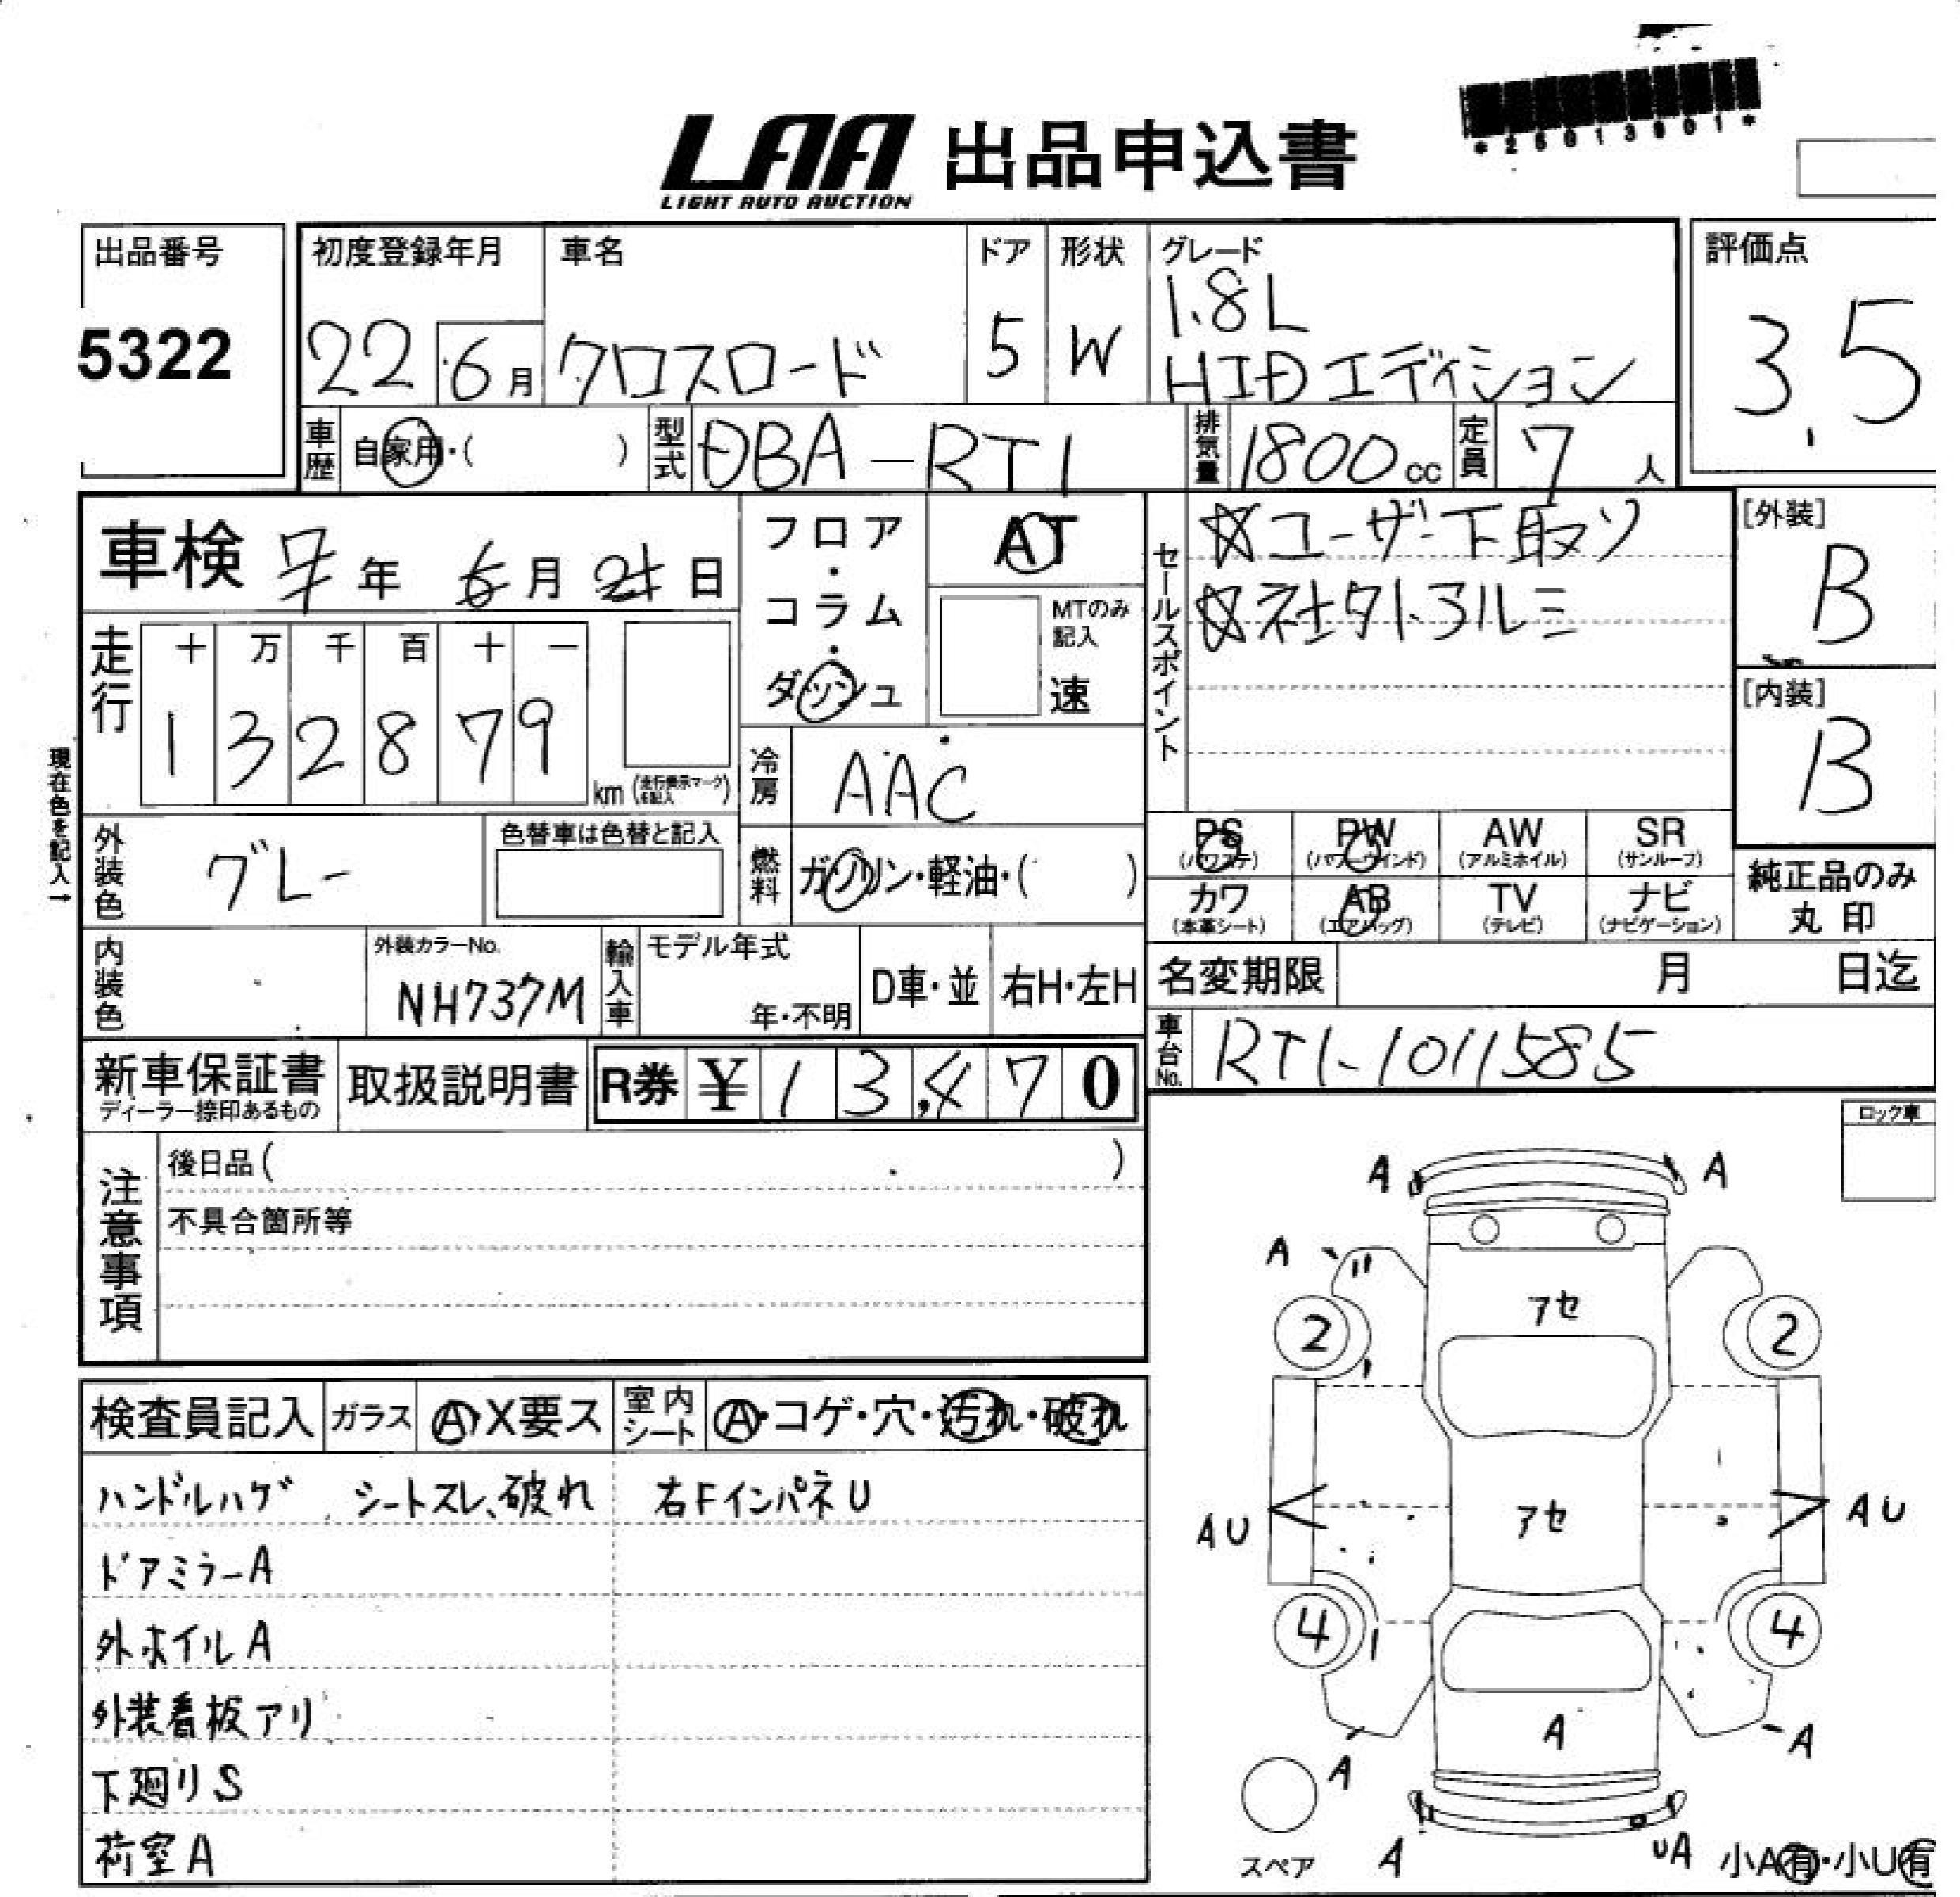 *25013901*
LAA 出品申込書
LIGHT AUTO AUCTION
出品番号
5322
初度登録年月
22 6月
車名
クロスロード
ドア
5
形状
W
グレード
1.8L
HIDエディション
評価点
3.5
車歴 自家用・( )
型式 DBA-RT1
排気量 1800cc
定員 7人
車検 7年 6月 21日
フロア・コラム・ダッシュ
AT
MTのみ記入
速
セールスポイント
☆ユーザー下取り
☆社外アルミ
[外装]
B
[内装]
B
走行
十 万 千 百 十 一
1 3 2 8 7 9
km (走行表示マークを記入)
現在色を記入→
冷房 AAC
外装色 グレー
色替車は色替と記入
燃料 ガソリン・軽油・( )
PS (パワステ)
PW (パワーウインド)
AW (アルミホイル)
SR (サンルーフ)
カワ (本革シート)
AB (エアバッグ)
TV (テレビ)
ナビ (ナビゲーション)
純正品のみ
丸印
内装色
外装カラーNo.
NH737M
輸入車
モデル年式
年・不明
D車・並
右H・左H
名変期限 月 日迄
車台No. RT1-1011585
新車保証書
ディーラー捺印あるもの
取扱説明書
R券 ¥ 13,470
注意事項
後日品( )
不具合箇所等
ロック車
検査員記入
ガラス A・X要ス
室内シート A・コゲ・穴・汚れ・破れ
ハンドルハゲ シートスレ、破れ 右FインパネU
ドアミラーA
外ホイルA
外装看板アリ
下廻りS
荷室A
A A
A
アセ
2 2
アセ
AU AU
4 4
A
A
A
スペア
A
UA
小A有・小U有